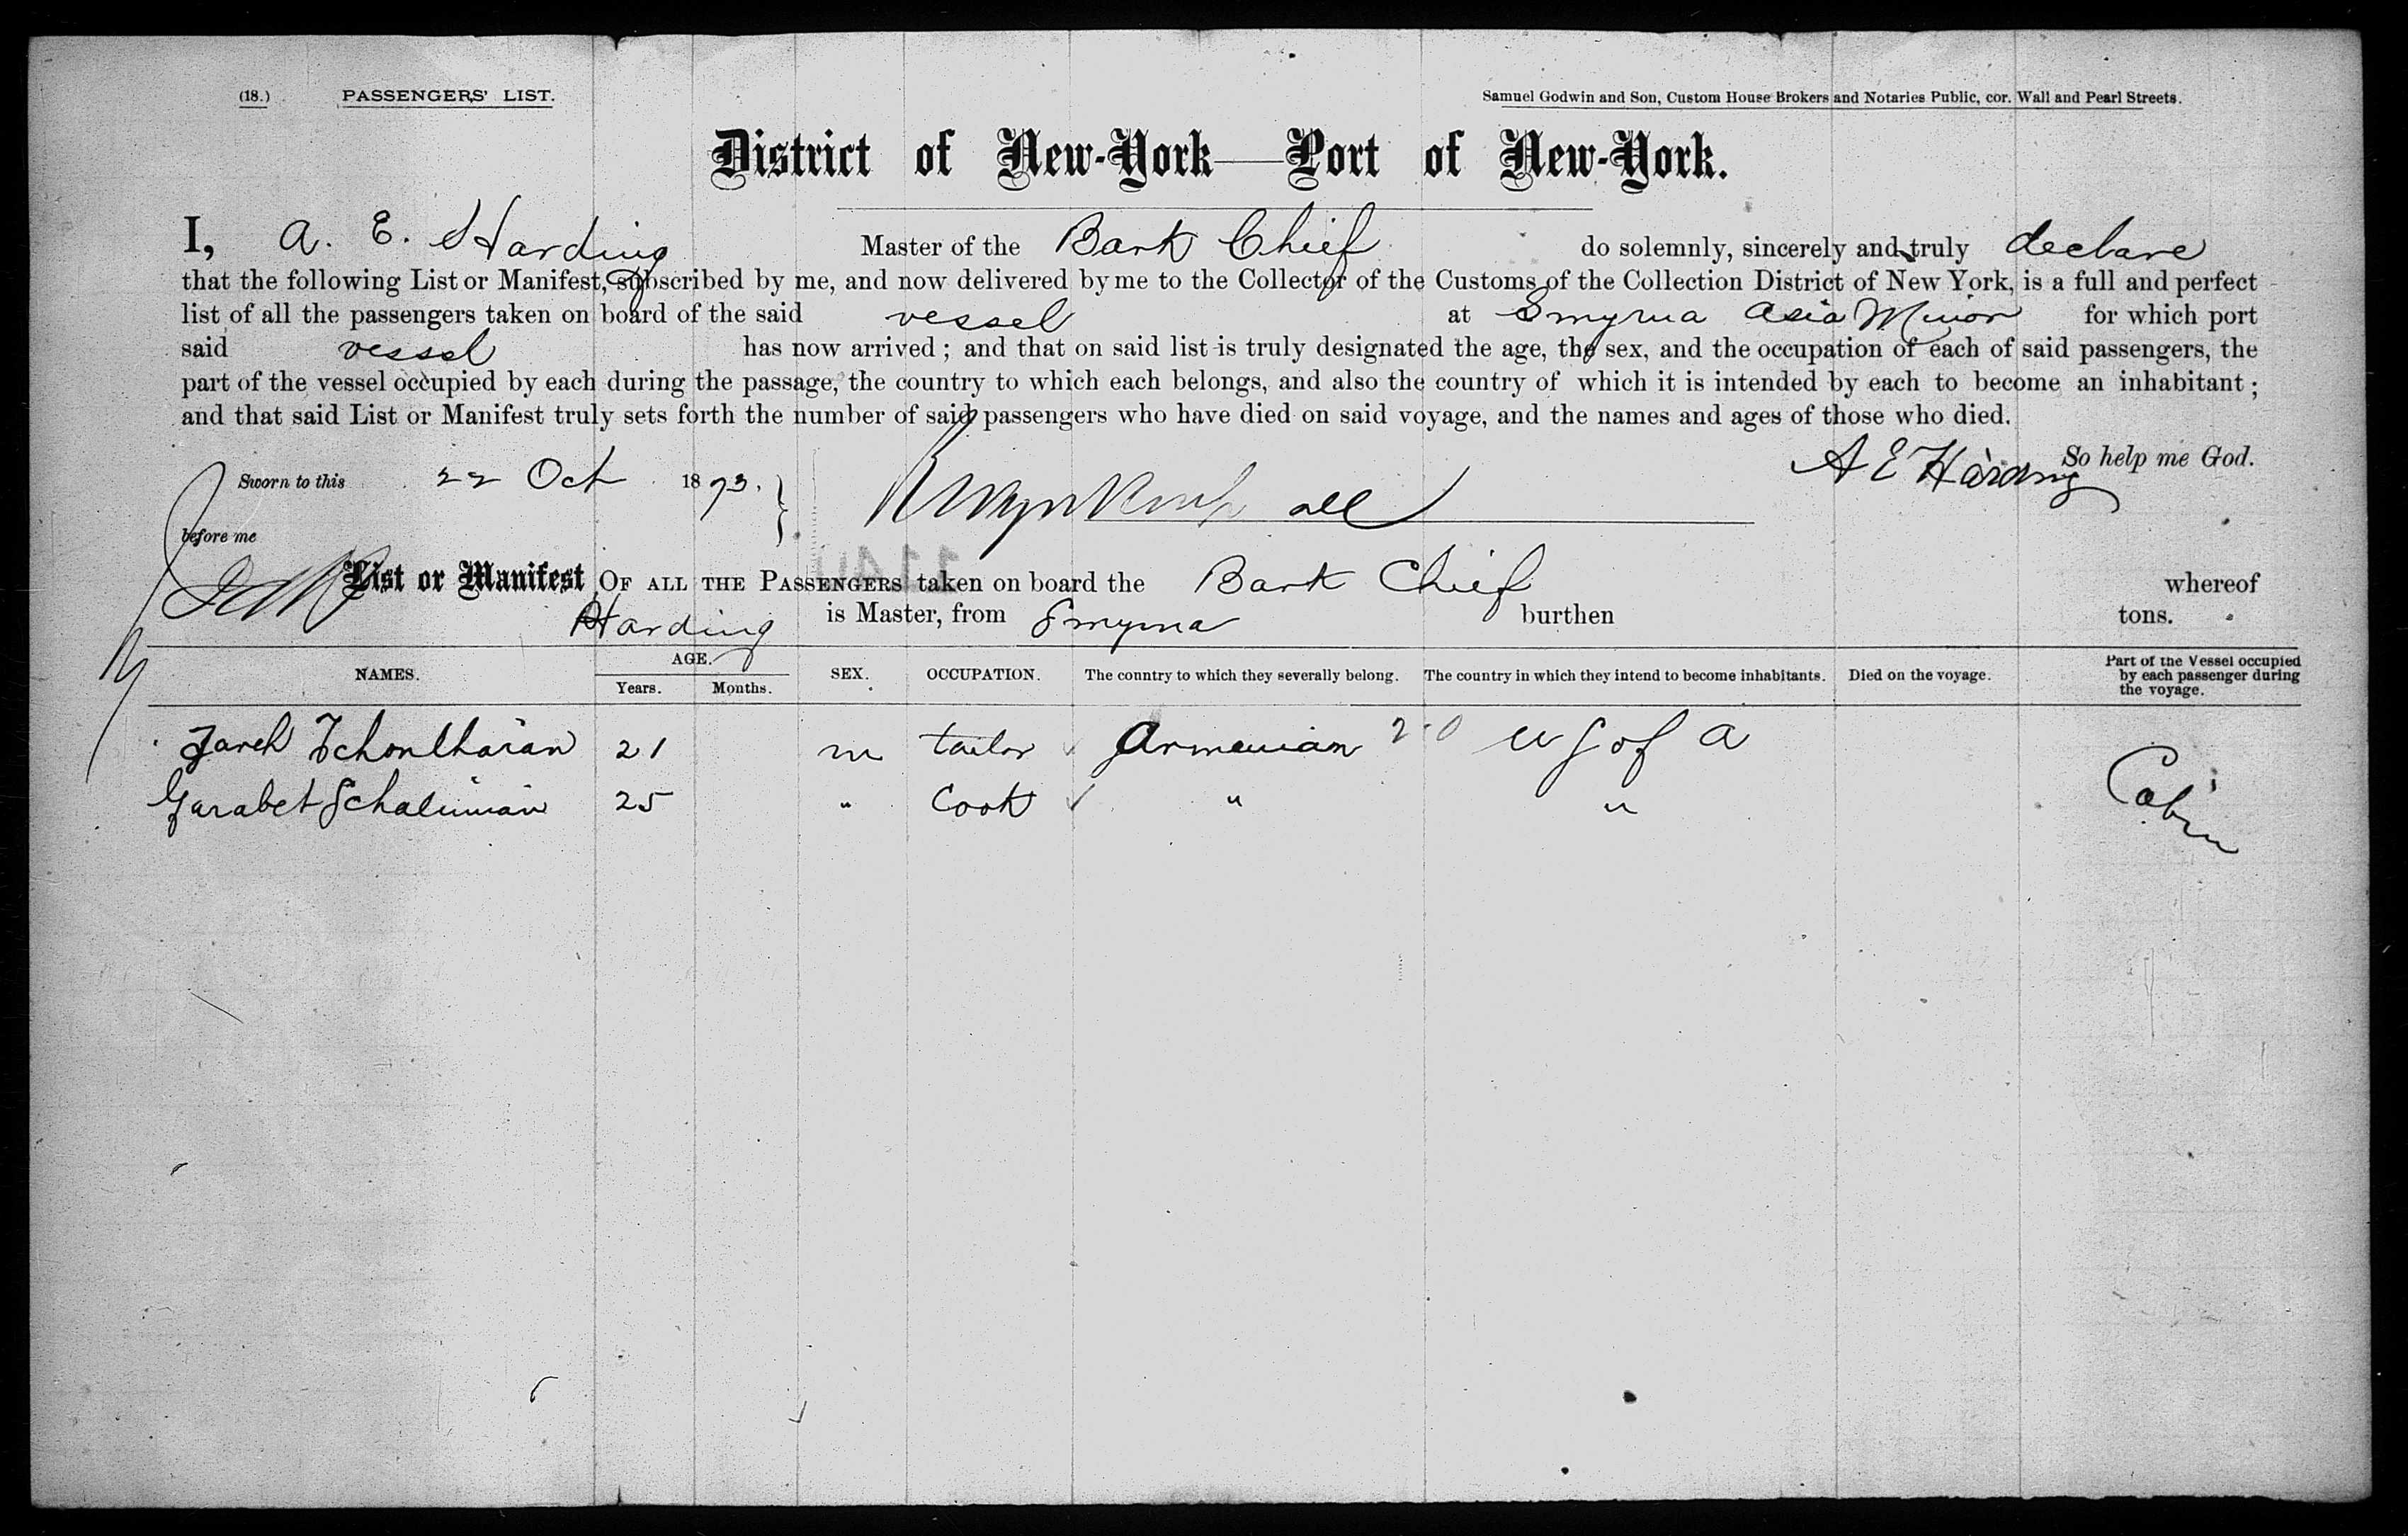 (18.) PASSENGERS' LIST. Samuel Godwin and Son, Custom House Brokers and Notaries Public, cor. Wall and Pearl Streets.
District of New-York—Port of New-York.
I, A. E. Harding Master of the Bark Chief do solemnly, sincerely and truly declare
that the following List or Manifest, subscribed by me, and now delivered by me to the Collector of the Customs of the Collection District of New York, is a full and perfect
list of all the passengers taken on board of the said vessel at Smyrna Asia Minor for which port
said vessel has now arrived; and that on said list is truly designated the age, the sex, and the occupation of each of said passengers, the
part of the vessel occupied by each during the passage, the country to which each belongs, and also the country of which it is intended by each to become an inhabitant;
and that said List or Manifest truly sets forth the number of said passengers who have died on said voyage, and the names and ages of those who died.
So help me God.
A E Harding
Sworn to this 22 Oct 1873.
before me
List or Manifest OF ALL THE PASSENGERS taken on board the Bark Chief whereof
Harding is Master, from Smyrna burthen tons.
NAMES. AGE. SEX. OCCUPATION. The country to which they severally belong. The country in which they intend to become inhabitants. Died on the voyage. Part of the Vessel occupied by each passenger during the voyage.
Years. Months.
21 m tailor Armenian U S of A
Garabet 25 " Cook " " Cabin